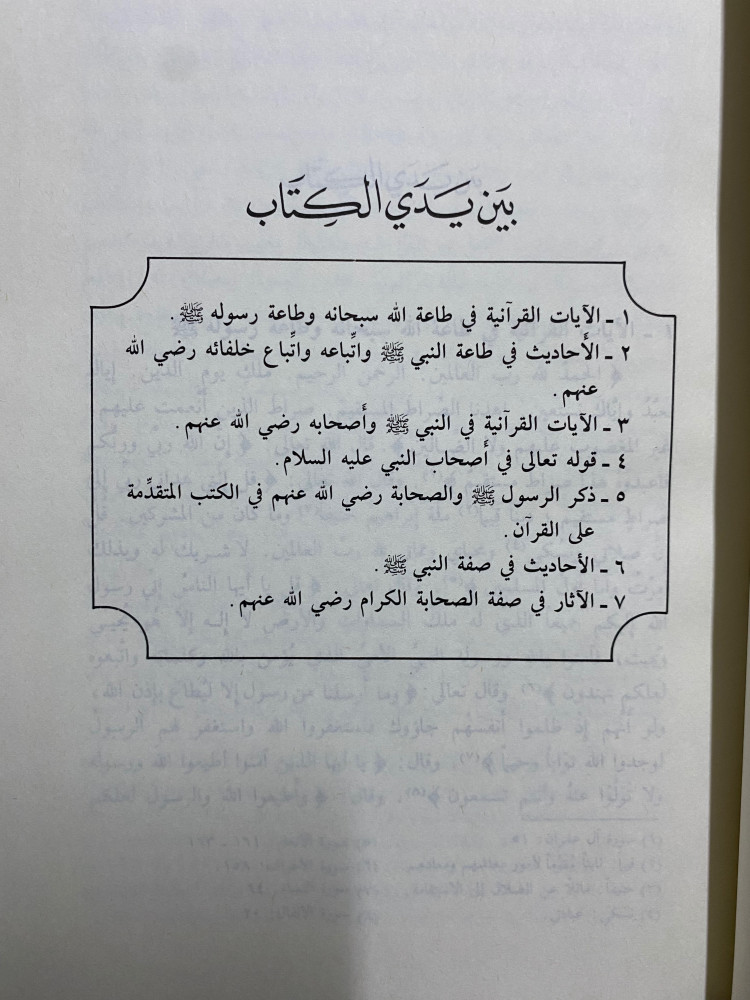 بَين يَدَي الكِتَاب
١ ـ الآيات القرآنية في طاعة الله سبحانه وطاعة رسوله ﷺ .
٢ ـ الأَحاديث في طاعة النبي ﷺ واتِّباعه واتِّباع خلفائه رضي الله
عنهم .
٣ ـ الآيات القرآنية في النبي ﷺ وأَصحابه رضي الله عنهم .
٤ ـ قوله تعالى في أَصحاب النبي عليه السلام .
٥ ـ ذكر الرسول ﷺ والصحابة رضي الله عنهم في الكتب المتقدِّمة
على القرآن .
٦ ـ الأحاديث في صفة النبي ﷺ .
٧ ـ الآثار في صفة الصحابة الكرام رضي الله عنهم .